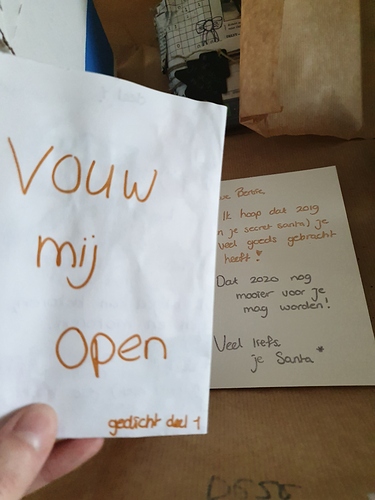 Vouw
mij
open
gedicht deel 1
Ik hoop dat 2019
je secret santa) je
veel goeds gebracht
heeft!
Dat 2020 nog
mooier voor je
mag worden!
Veel liefs
je Santa *